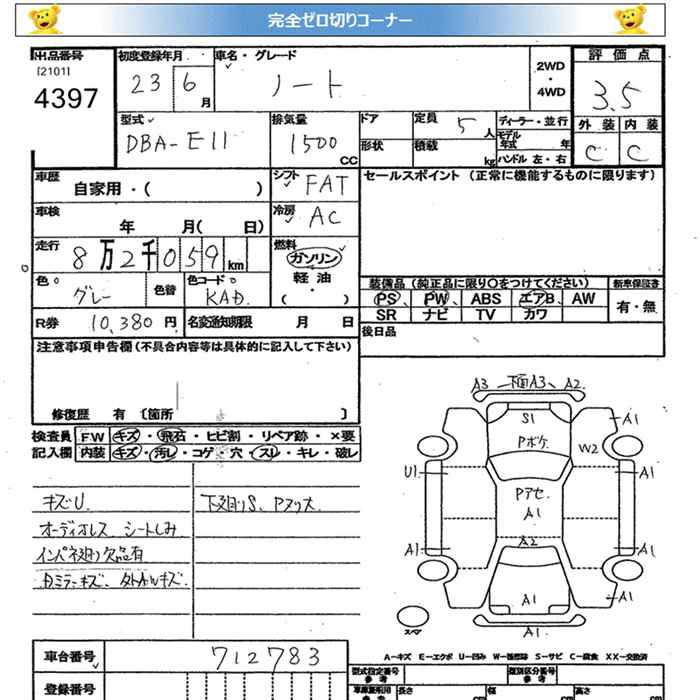 完全ゼロ切りコーナー
出品番号
[2101]
4397
初度登録年月
23 6 月
車名・グレード
ノート
2WD
・
4WD
評価点
3.5
外装 内装
C C
型式
DBA-E11
排気量
1500
CC
ドア
形状
定員 5 人
積載 kg
ディーラー・並行
モデル年式 年
ハンドル 左・右
車歴
自家用・( )
シフト FAT
セールスポイント (正常に機能するものに限ります)
車検
年 月( 日)
冷房 AC
走行
8万2千059 km
燃料
ガソリン
軽油
・( )
色
グレー
色替
色コード
KAD
R券 10,380 円
名変通知期限 月 日
装備品(純正品に限り○をつけてください)
PS、 PW、 ABS エアB、 AW
SR ナビ TV カワ
新車保証書
有・無
後日品
注意事項申告欄(不具合内容等は具体的に記入して下さい)
修復歴 有〔箇所 〕
検査員 FW キズ・飛石・ヒビ割・リペア跡・×要
記入欄 内装 キズ・汚レ・コゲ・穴・スレ・キレ・破レ
キズU.
オーディオレス シートしみ
インパネ廻り欠品有
下廻りS、
A3 下面A3、A2
S1 A1
Pボケ W2
U1 A1
Pアセ
A1
A2
A1 A1
A1 A1
スペア
A1
A-キズ E-エクボ U-凹み W-補修跡 S-サビ C-腐食 XX-交換済
車台番号 712783
登録番号
型式指定番号
参考
類別区分番号
参考
長さ 幅 高さ